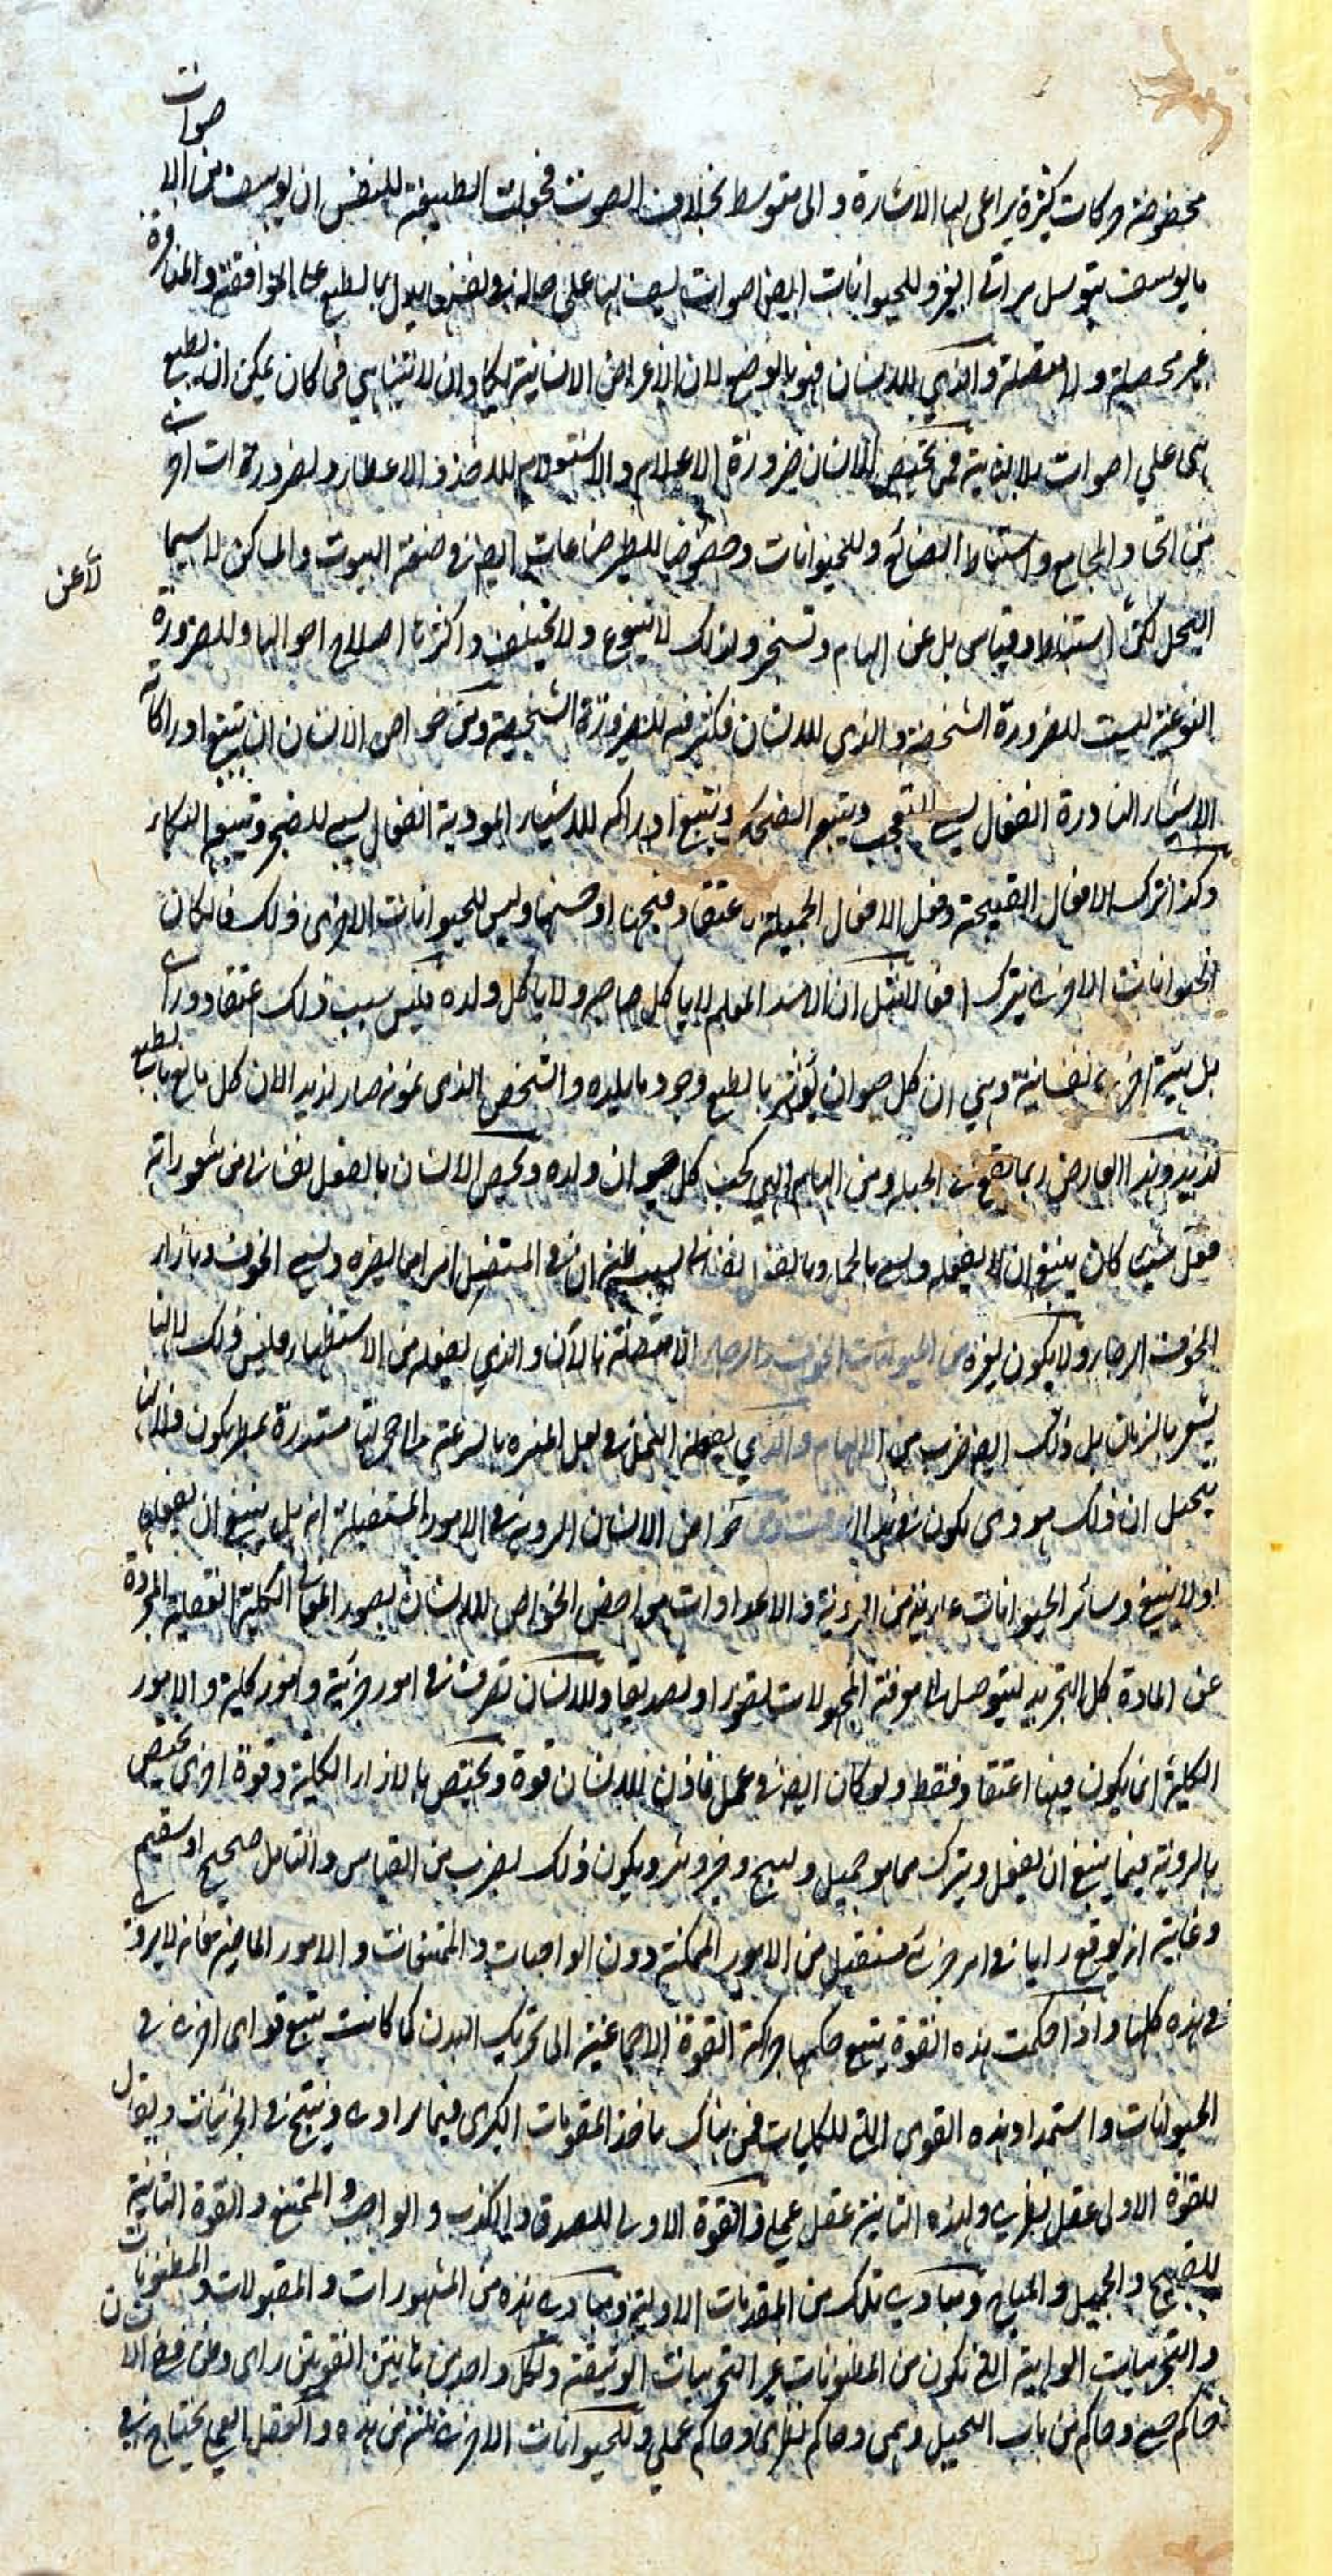 مخصوصة وحركات كثيرة يراعى بها الاشارة والى متوسط بخلاف الصوت فجعلت الطبيعة للنفس ان يؤلف من الاصوات
ما يوسف يتوسل به الى الغير وللحيوانات ايضا اصوات يقف بها على حال في نفسها يدل بالطبع على الموافقة والمنافرة
غير محصلة ولا مفصلة والذي للانسان فهو بالوضع لان الاعراض الانسانية يكاد ان لا تتناهى فما كان يمكن ان يطبع
هى على اصوات بلا نهاية فمن تختص الانسان ضرورة الاعلام والاستعلام للاخذ والاعطاء ولضرورات اخرى
من اتخاذ المجامع واستنباط الصنائع وللحيوانات وخصوصا للطير صناعات ايضا في صنعة البيوت والمساكن لا سيما
النحل لكن لا عن استنباط وقياس بل عن الهام وتسخير ولذلك لا يتنوع ولا يختلف واكثرها اصلاح احوالها وللضرورة
النوعية ليست للضرورة الشخصية والذي للانسان فكثير منه للضرورة الشخصية ومن خواص الانسان ان يتبع ادراكاته
الاشياء النادرة انفعال يسمى التعجب ويتبعه الضحك ويتبع ادراكه للاشياء الموذية انفعال يسمى الضجر ويتبعه البكاء
وكذا ترك الافعال القبيحة وفعل الافعال الجميلة باعتقاد قبحها او حسنها وليس للحيوانات الاخرى ذلك فان كان
الحيوانات الاخرى يترك افعالا مثل ان الاسد المعلم لا ياكل صاحبه ولا ياكل ولده فليس سبب ذلك اعتقاد ورأى
بل هيئة اخرى نفسانية وهي ان كل حيوان يؤثر بالطبع وجود ما يلذه والشخص الذي يمونه صار لذيذا لان كل نافع بالطبع
لذيذ وهذا العارض ربما يقع في الجبلة ومن الهام الهي كحب كل حيوان ولده ويخص الانسان بانفعال نفساني من شعوره انه
فعل شيئا كان ينبغي ان لا يفعله ويسمى بالخجل وبانفعال نفساني بسبب ظنه ان في المستقبل امرا مما يضره ويسمى الخوف وبازاء
الخوف الرجاء ولا يكون لغيره من الحيوانات الخوف والرجاء الا متصلة بالآن والذي يفعله من الاستظهار فليس ذلك لانها
يشعر بالزمان بل ذلك ايضا ضرب من الالهام والذي يفعله النمل في نقل الميرة بالسرعة الى جحرتها منذرة بمطر يكون فلانها
يتخيل ان ذلك هو ذي يكون في هذا الوقت ومن خواص الانسان الروية في الامور المستقبلة انه هل ينبغي ان يفعلها
او لا ينبغي وسائر الحيوانات عارية من الروية والاعدادات ومن اخص الخواص للانسان تصور المعاني الكلية العقلية المجردة
عن المادة كل التجريد ليتوصل الى معرفة المجهولات تصورا وتصديقا وللانسان تصرف في امور جزئية وامور كلية والامور
الكلية انما يكون فيها اعتقاد فقط ولو كان ايضا في عمل فاذن للانسان قوة ويختص بالاراء الكلية وقوة اخرى يختص
بالروية فيما ينبغي ان يفعل ويترك مما هو جميل وقبيح وخير وشر ويكون ذلك بضرب من القياس والتامل صحيح او سقيم
وغايته انه يوقع رايا في امر جزئي مستقبل من الامور الممكنة دون الواجبات والممتنعات والامور الماضية فانه لا يروى
في هذه كلها واذا حكمت هذه القوة يتبع حكمها حركة القوة الاجماعية الى تحريك البدن كما كانت يتبع قوى اخرى في
الحيوانات واستمداد هذه القوى التي للكليات فمن هناك ياخذ المقدمات الكبرى فيما يراد وينتج في الجزئيات ويقال
للقوة الاولى عقل نظري ولهذه الثانية عقل عملي والقوة الاولى للصدق والكذب والواجب والممتنع والقوة الثانية
للقبيح والجميل والمباح ومبادئ تلك من المقدمات الاولية ومبادئ هذه من المشهورات والمقبولات والمظنونات
والتجربيات الواهية التي تكون من المظنونات غير التجربيات الوثيقة ولكل واحد من هاتين القوتين راى وظن ففي الانسان
حاكم حسي وحاكم من باب التخيل وهمي وحاكم نظري وحاكم عملي وللحيوانات الاخرى ثلثة من هذه والعقل العملي يحتاج في